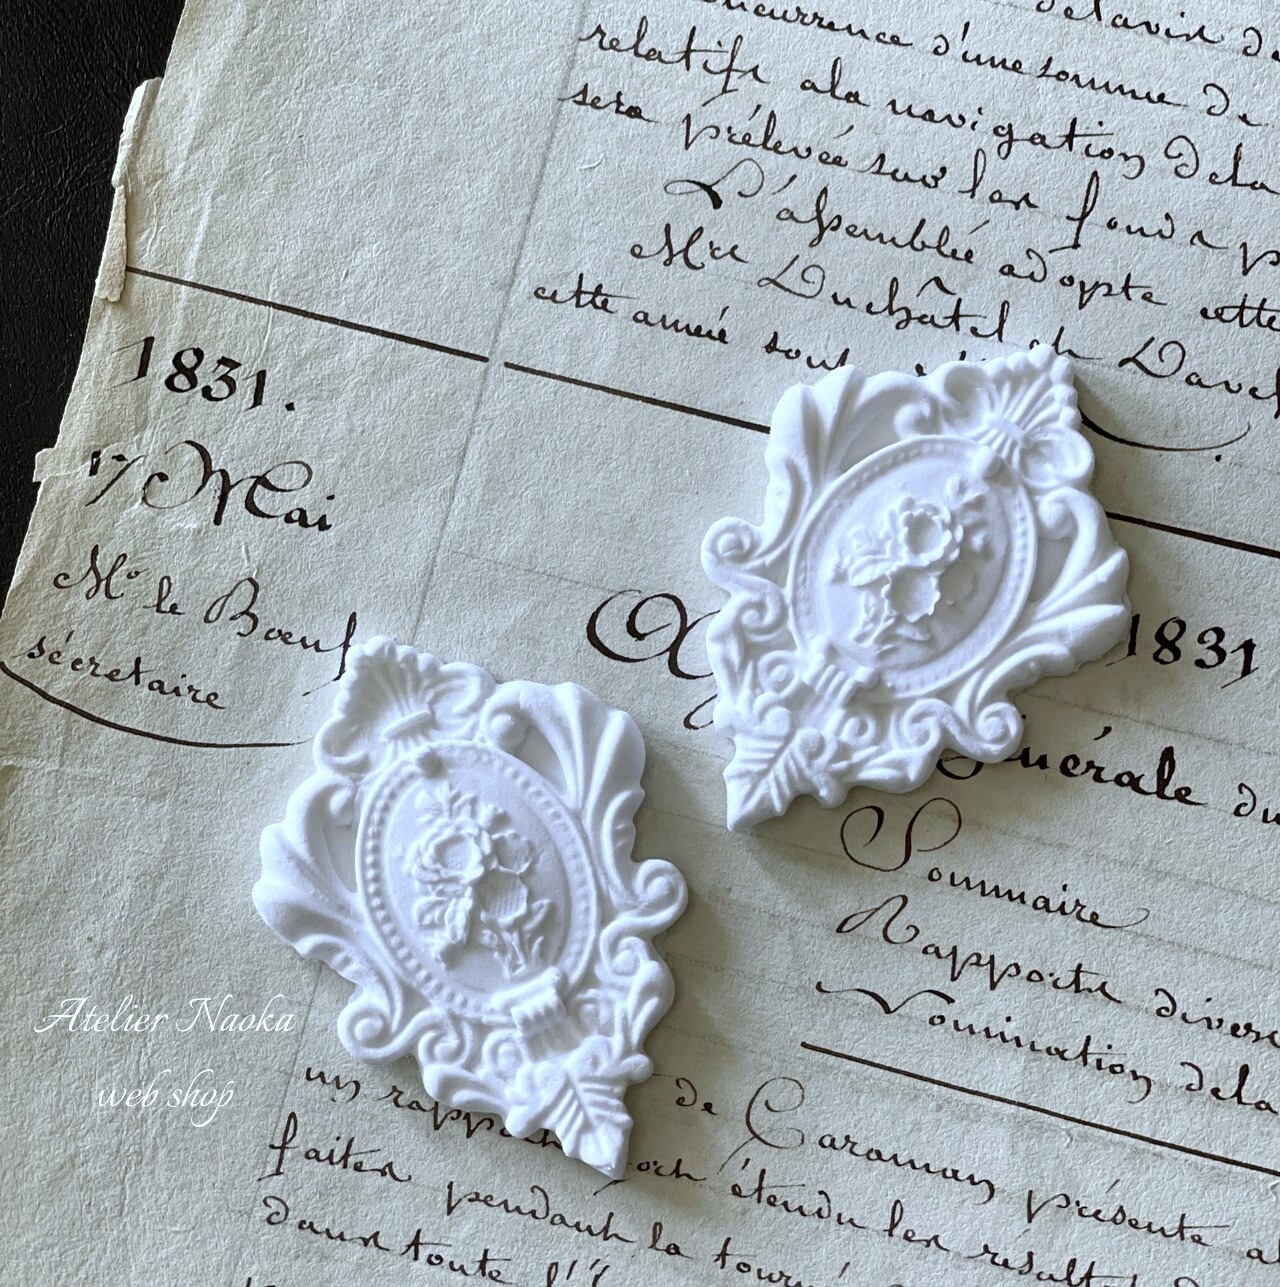 délavis de
concurrence d'une somme de
relatifs ala navigation dela
sera prélevée sur les fonds p
L'assemblée adopte cette
Mrs Duchâtel et Davel
cette année sont
1831.
17 Mai
Mr. le Boeuf
sécretaire
1831
nérale du
Sommaire
Rapports divers
Nomination dela
un rapport de Caraman présente
faites pendant la tourn
étendu les résult
dans toute l'
Atelier Naoka
web shop